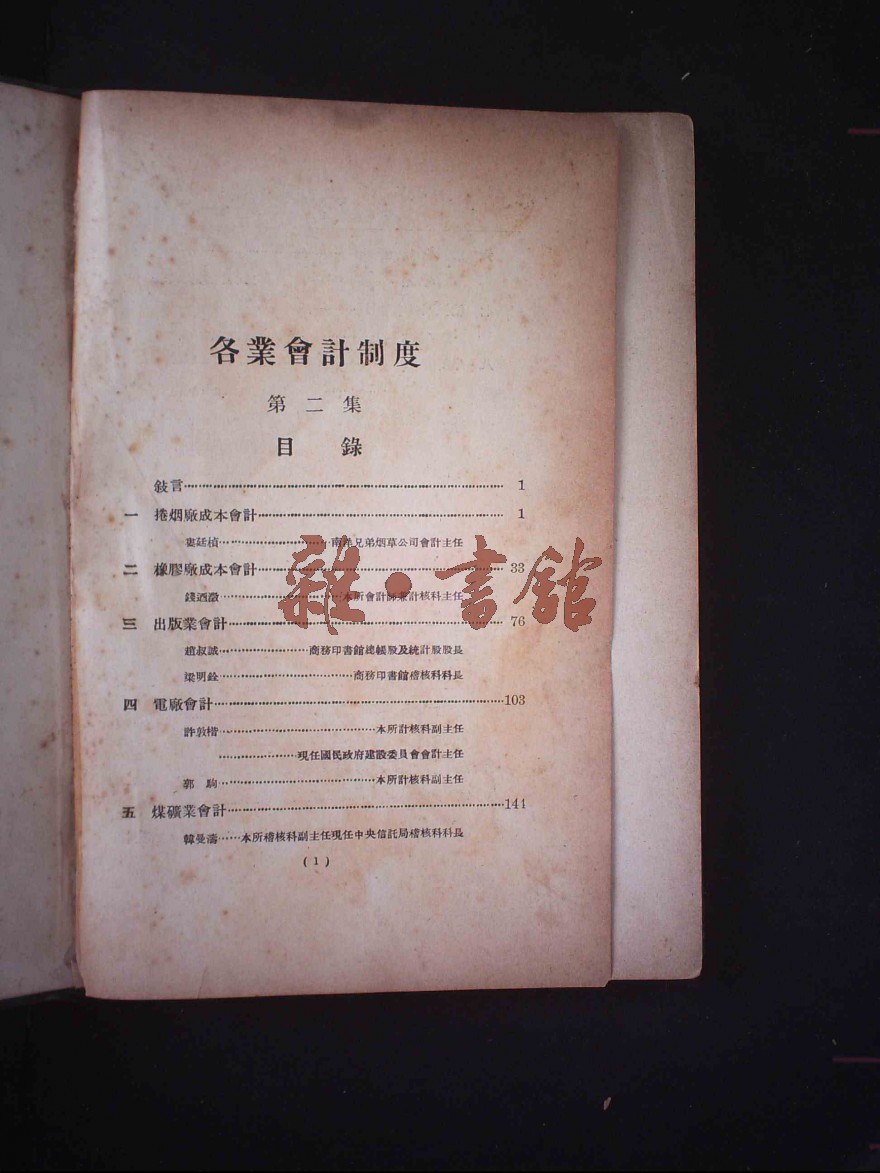 各業會計制度
第二集
目錄
敍言 1
一 捲烟廠成本會計 1
婁廷楨 南洋兄弟烟草公司會計主任
二 橡膠廠成本會計 33
錢迺澂 本所會計師兼計核科主任
三 出版業會計 76
趙叔誠 商務印書館總帳股及統計股股長
梁明銓 商務印書館稽核科科長
四 電廠會計 103
許敦楷 本所計核科副主任
現任國民政府建設委員會會計主任
郭駒 本所計核科副主任
五 煤礦業會計 144
韓曼濤 本所稽核科副主任現任中央信託局稽核科科長
(1)
雜·書館